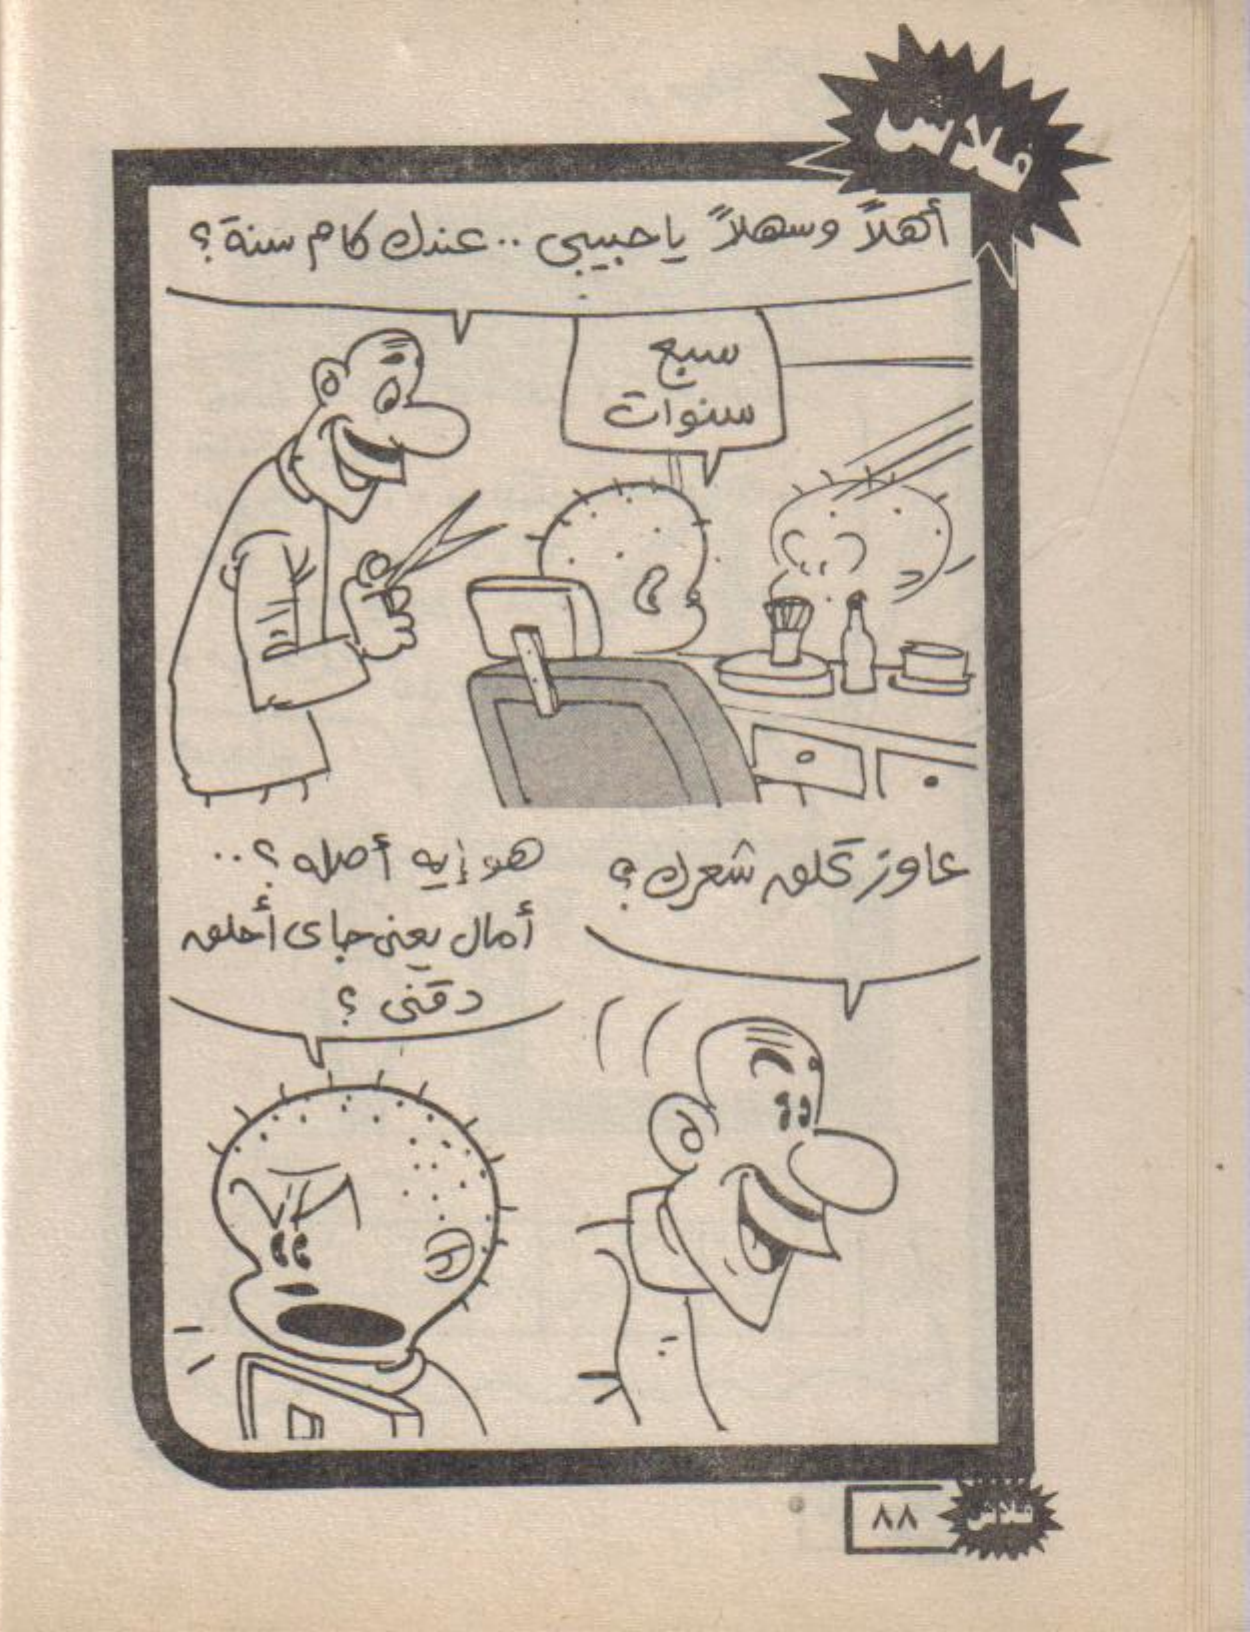 فلاش
أهلاً وسهلاً ياحبيبى .. عندك كام سنة؟
سبع
سنوات
عاوز تحلق شعرك؟
هو إيه أصله؟ ..
أمال يعنى جاى أحلق
دقنى؟
٨٨
فلاش